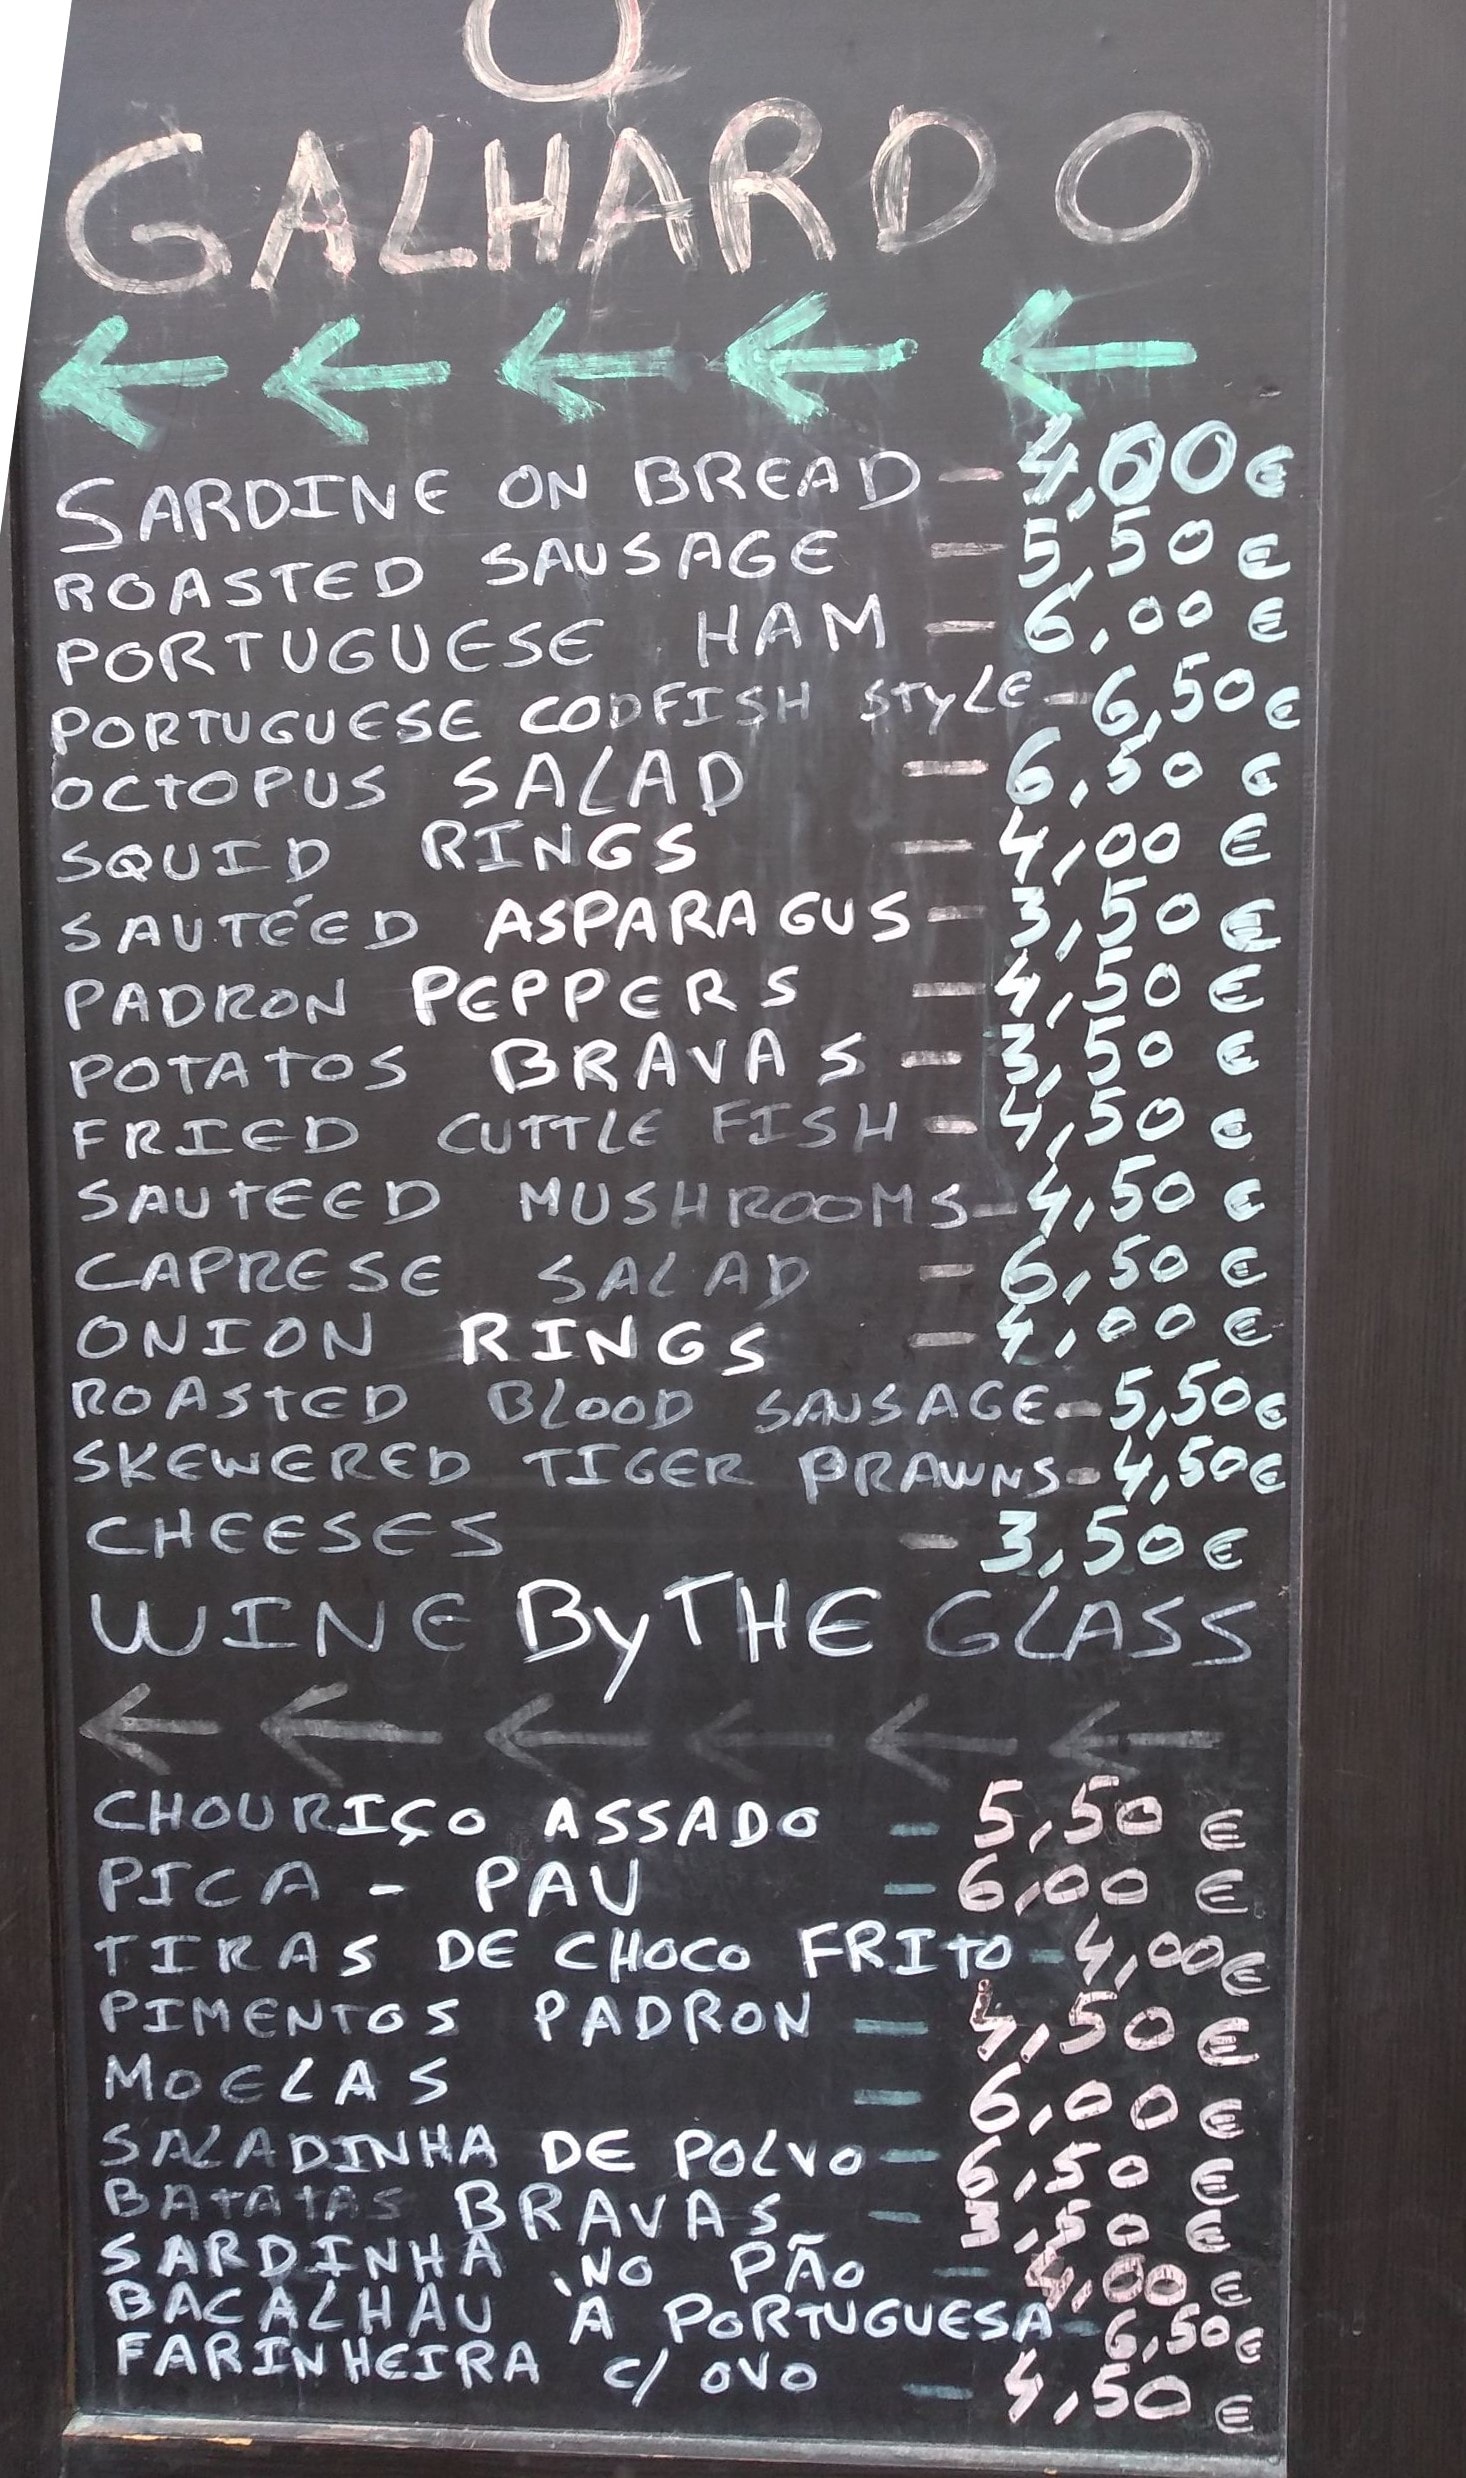 O
GALHARDO
SARDINE ON BREAD - 4,00€
ROASTED SAUSAGE - 5,50€
PORTUGUESE HAM - 6,00€
PORTUGUESE CODFISH STYLE - 6,50€
OCTOPUS SALAD - 6,50€
SQUID RINGS - 4,00€
SAUTÉED ASPARAGUS - 3,50€
PADRON PEPPERS - 4,50€
POTATOS BRAVAS - 3,50€
FRIED CUTTLE FISH - 4,50€
SAUTEED MUSHROOMS - 4,50€
CAPRESE SALAD - 6,50€
ONION RINGS - 4,00€
ROASTED BLOOD SAUSAGE - 5,50€
SKEWERED TIGER PRAWNS - 4,50€
CHEESES - 3,50€
WINE By THE GLASS
CHOURIÇO ASSADO - 5,50€
PICA - PAU - 6,00€
TIRAS DE CHOCO FRITO - 4,00€
PIMENTOS PADRON - 4,50€
MOELAS - 6,00€
SALADINHA DE POLVO - 6,50€
BATATAS BRAVAS - 3,50€
SARDINHA NO PÃO - 4,00€
BACALHAU À PORTUGUESA - 6,50€
FARINHEIRA C/ OVO - 4,50€